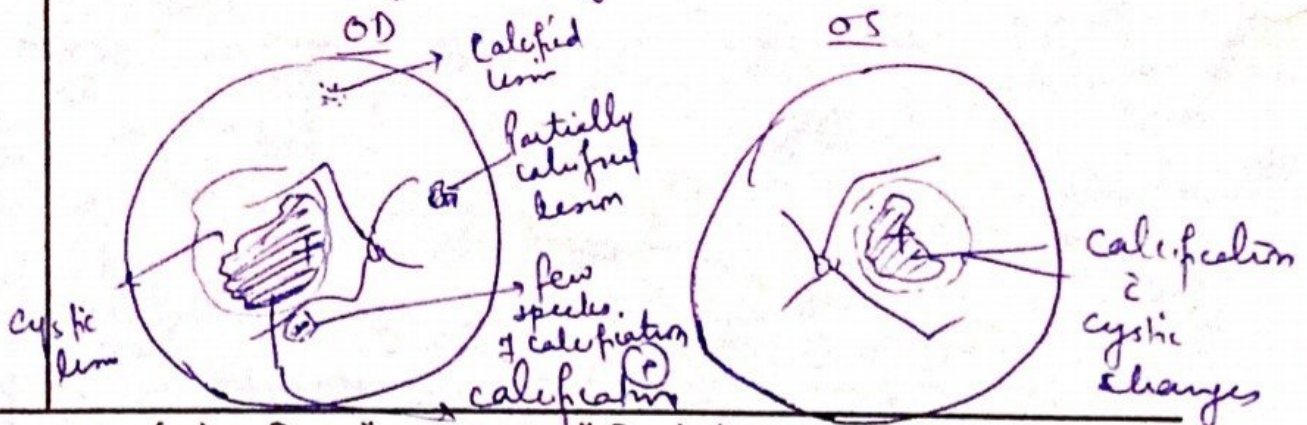 OD
OS
Calcified
lesion
Partially
calcified
lesion
few
specks
of calcification
calcification
cystic
lesion
Calcification
c̄
cystic
changes